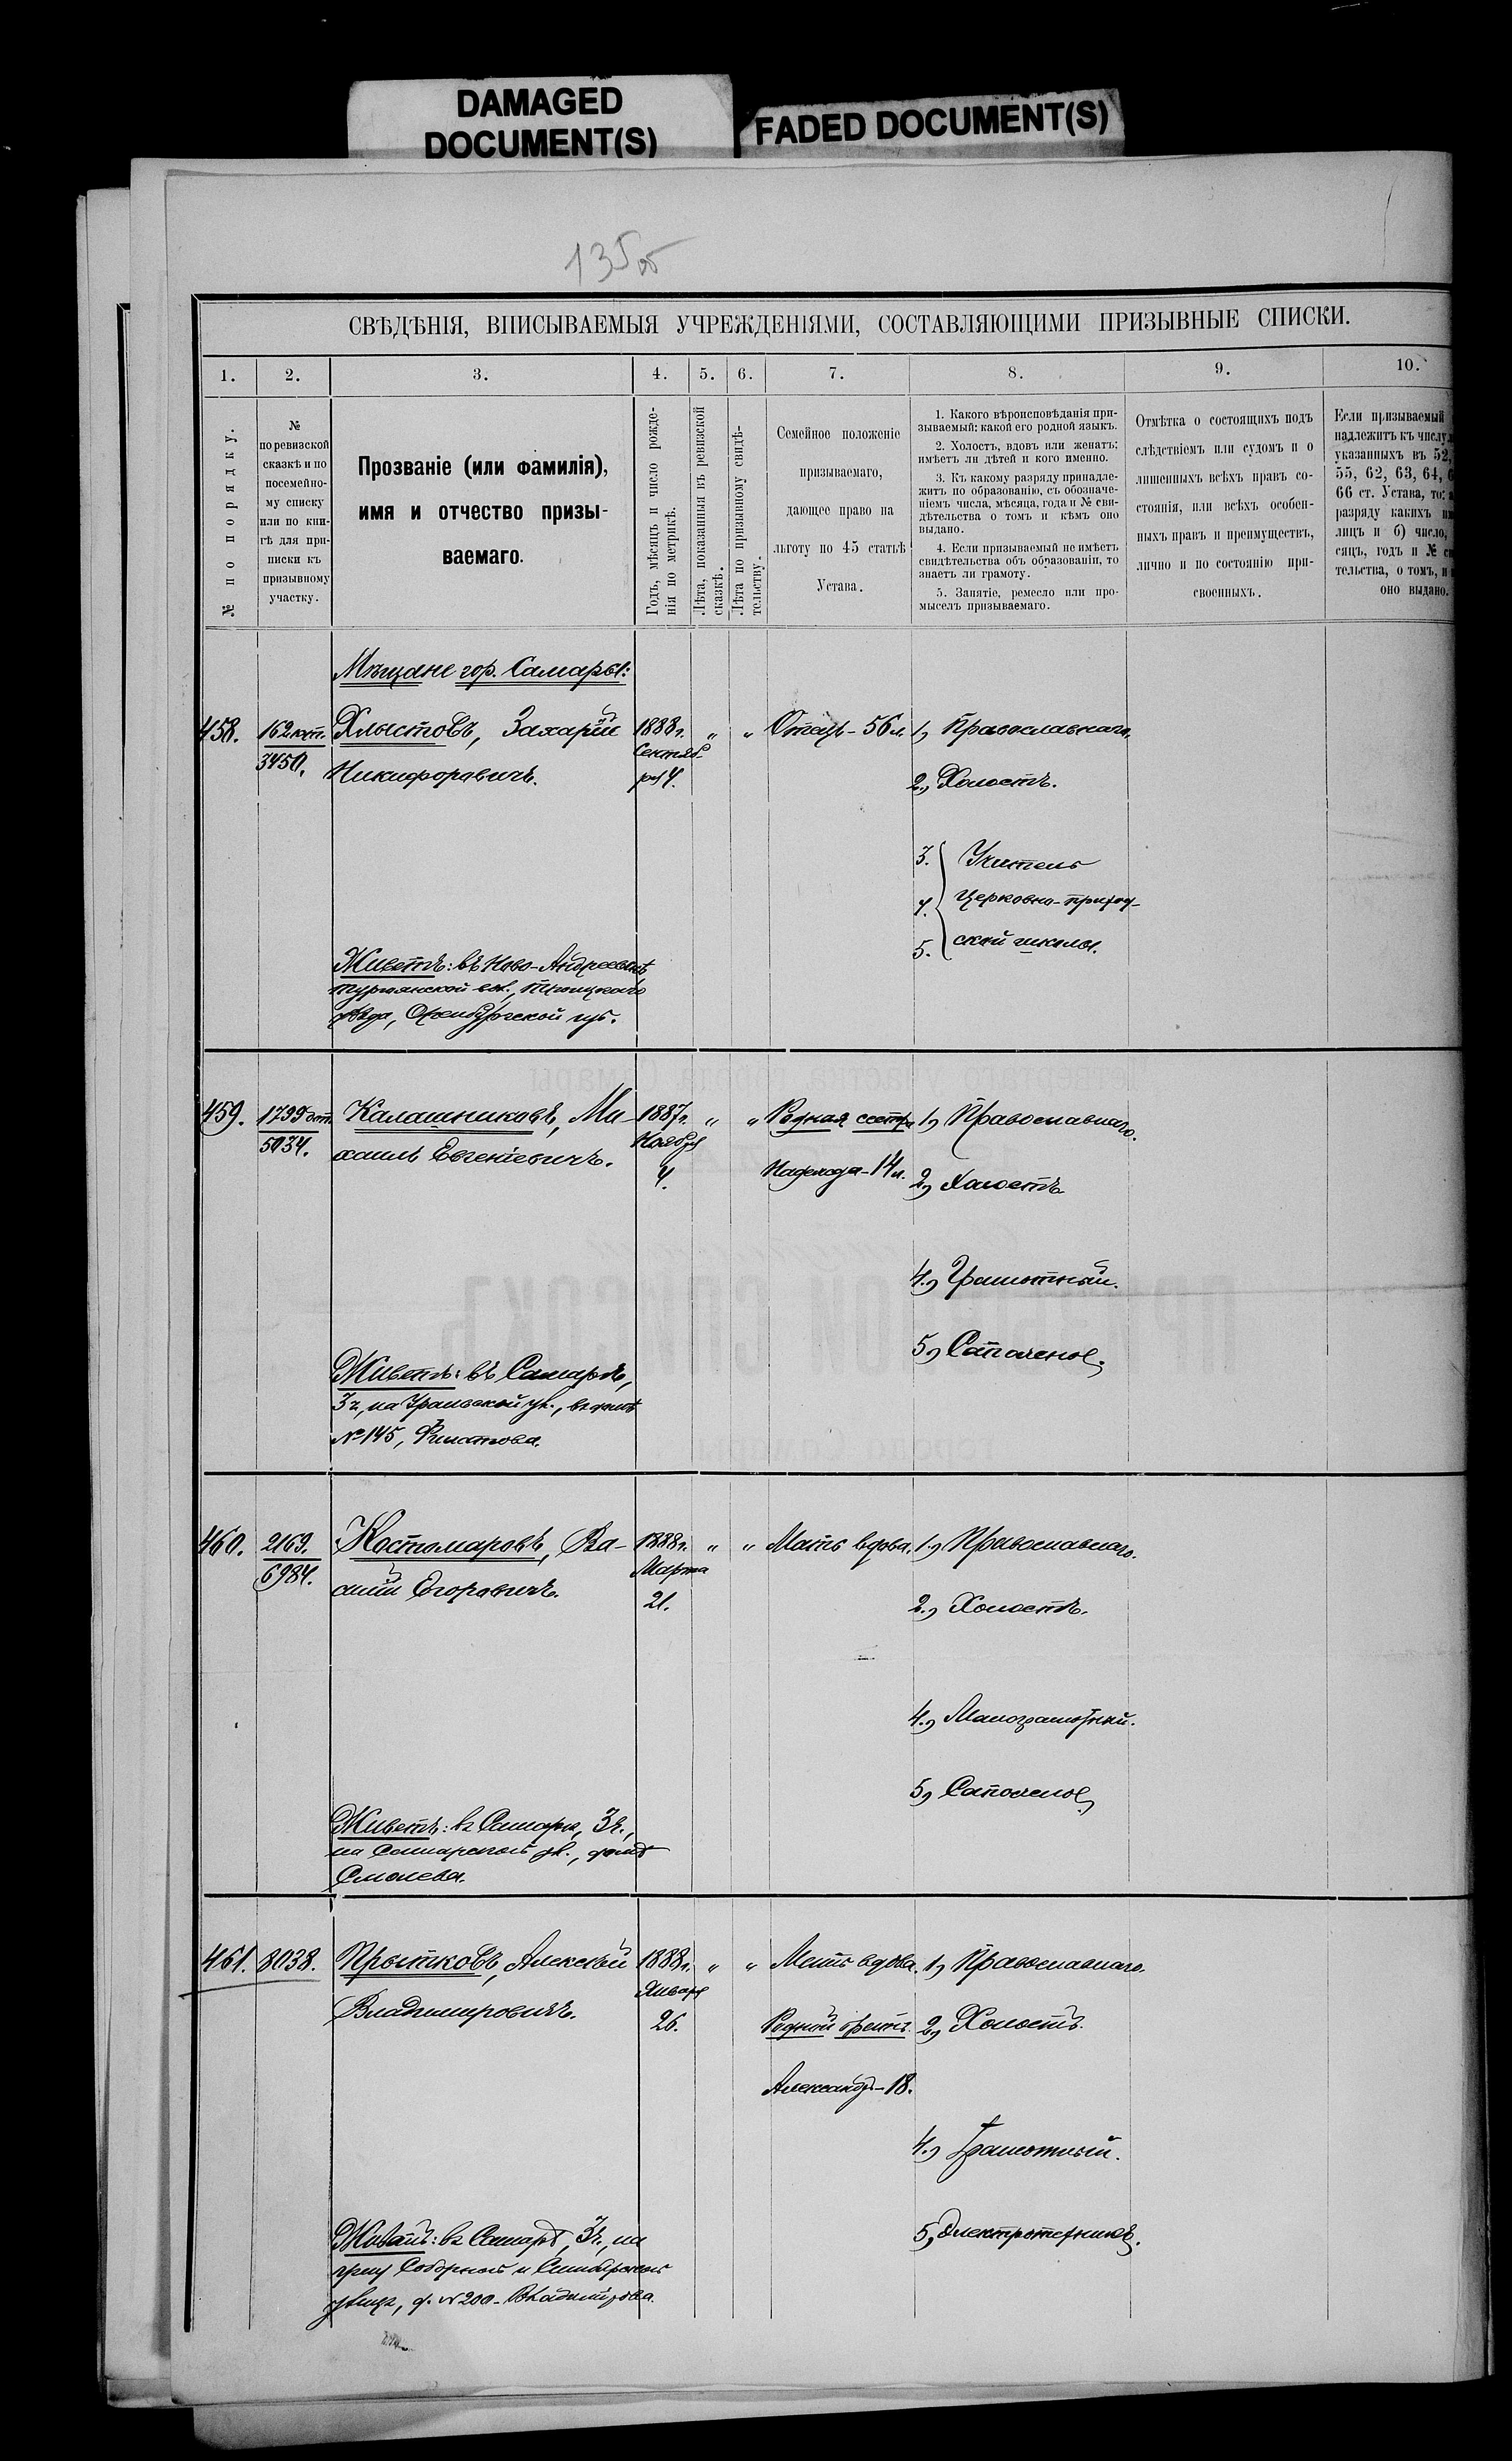 DAMAGED
DOCUMENT(S)
FADED DOCUMENT(S)
135 об
СВѢДѢНІЯ, ВПИСЫВАЕМЫЯ УЧРЕЖДЕНІЯМИ, СОСТАВЛЯЮЩИМИ ПРИЗЫВНЫЕ СПИСКИ.
1.
2.
3.
4.
5.
6.
7.
8.
9.
10.
№ по порядку.
№
по ревизской
сказкѣ и по
посемейно-
му списку
или по кни-
гѣ для при-
писки къ
призывному
участку.
Прозваніе (или фамилія),
имя и отчество призы-
ваемаго.
Годъ, мѣсяцъ и число рожде-
нія по метрикѣ.
Лѣта, показанныя въ ревизской
сказкѣ.
Лѣта по призывному свидѣ-
тельству.
Семейное положеніе
призываемаго,
дающее право на
льготу по 45 статьѣ
Устава.
1. Какого вѣроисповѣданія при-
зываемый; какой его родной языкъ.
2. Холостъ, вдовъ или женатъ;
имѣетъ ли дѣтей и кого именно.
3. Къ какому разряду принадле-
житъ по образованію, съ обозначе-
ніемъ числа, мѣсяца, года и № сви-
дѣтельства о томъ и кѣмъ оно
выдано.
4. Если призываемый не имѣетъ
свидѣтельства объ образованіи, то
знаетъ ли грамоту.
5. Занятіе, ремесло или про-
мыселъ призываемаго.
Отмѣтка о состоящихъ подъ
слѣдствіемъ или судомъ и о
лишенныхъ всѣхъ правъ со-
стоянія, или всѣхъ особен-
ныхъ правъ и преимуществъ,
лично и по состоянію при-
своенныхъ.
Если призываемый
надлежитъ къ числу
указанныхъ въ 52,
55, 62, 63, 64,
66 ст. Устава, то:
разряду какихъ
лицъ и б) число,
сяцъ, годъ и №
тельства, о томъ,
оно выдано.
Мѣщане гор. Самары:
458.
162
3450.
Хлыстовъ, Захарій
Никифоровичъ.
1888г.
Сентяб-
ря 4.
" "
Отецъ - 56 л.
1, Православнаго.
2, Холостъ.
3. Учитель
4. Церковно-приход-
5. ской школы.
Живетъ: въ Ново-Андреевкѣ
вол., Троицкаго
уѣзда, Оренбургской губ.
459.
1799
5034.
Калашниковъ, Ми-
хаилъ Евгеніевичъ.
1887г.
Ноября
4.
" "
Родная сестра
Надежда - 14 л.
1, Православнаго.
2, Холостъ
4, Грамотный.
5, Сапожное.
Живетъ: въ Самарѣ,
3ч, на Уральской ул., въ домѣ
№ 145, Филатова.
460.
2169.
6984.
Костомаровъ, Ва-
силій Егоровичъ.
1888г.
Марта
21.
" "
Мать вдова.
1, Православнаго.
2, Холостъ.
4, Малограмотный.
5, Сапожное
Живетъ: въ Самарѣ, 3ч.,
на Самарской ул., домъ
461.
8038.
Прытковъ, Алексѣй
Владимировичъ.
1888г.
Января
26.
" "
Мать вдова.
Родной братъ
Александръ - 18.
1, Православнаго.
2, Холостъ.
4, Грамотный.
5, Электротехникъ.
Живетъ: въ Самарѣ, 3ч., на
углу Соборной и Симбирской
улицъ, д. № 200 - Владимірова.